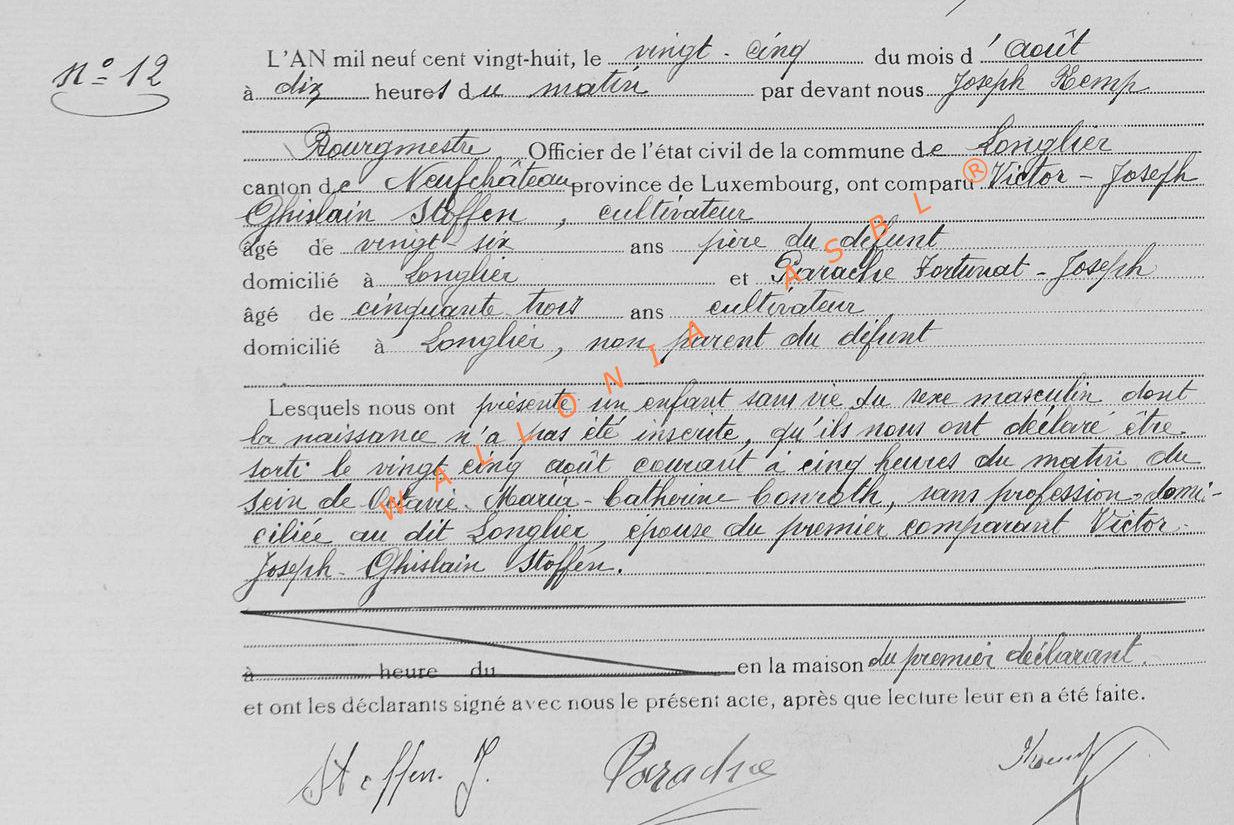 L'AN mil neuf cent vingt-huit, le vingt-cinq du mois d'août
n° 12
à dix heures du matin par devant nous Joseph Kemp
Bourgmestre Officier de l'état civil de la commune de Longlier
canton de Neufchâteau province de Luxembourg, ont comparu Victor-Joseph
Ghislain Stoffen, cultivateur
âgé de vingt-six ans père du défunt
domicilié à Longlier et Parache Fortunat-Joseph
âgé de cinquante trois ans cultivateur
domicilié à Longlier, non parent du défunt
Lesquels nous ont présenté un enfant sans vie du sexe masculin dont
la naissance n'a pas été inscrite, qu'ils nous ont déclaré être
sorti le vingt cinq août courant à cinq heures du matin du
sein de Octavie-Maria-Catherine Conroth, sans profession, domi-
ciliée au dit Longlier, épouse du premier comparant Victor-
Joseph-Ghislain Stoffen.
à heure du en la maison du premier déclarant.
et ont les déclarants signé avec nous le présent acte, après que lecture leur en a été faite.
Stoffen. J. Parache Kemp
WALLONIA ASBL ®